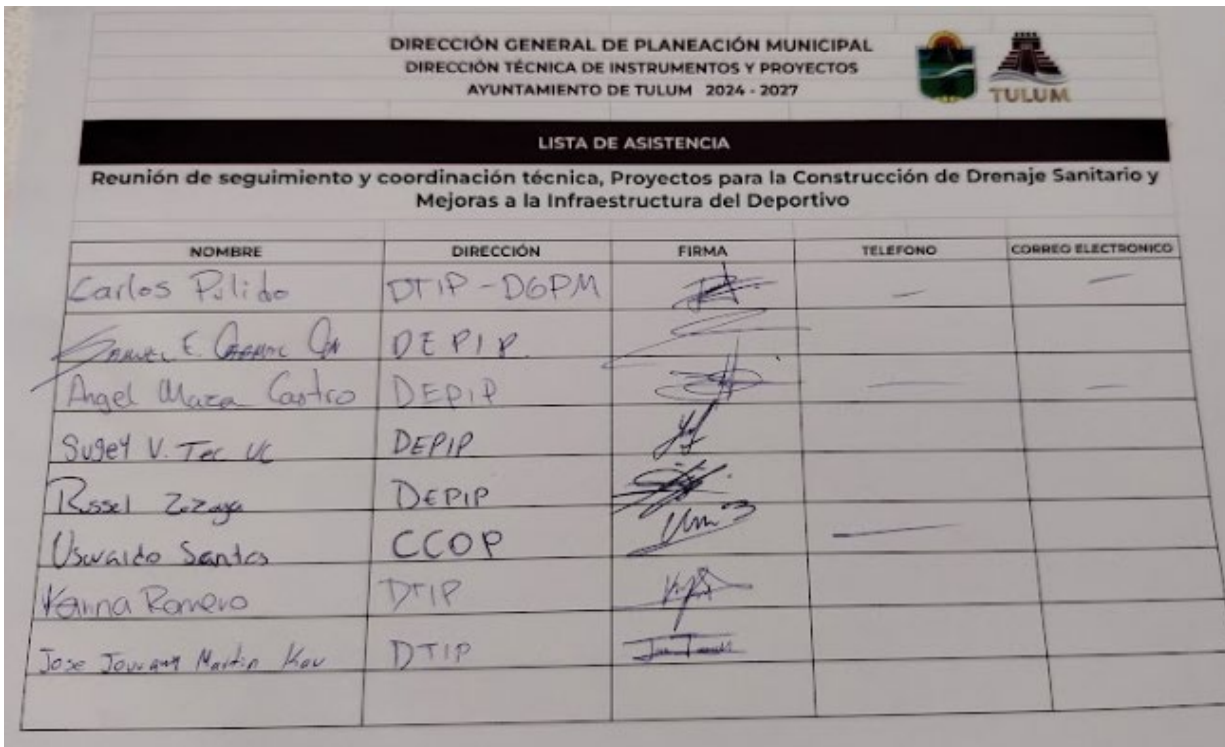 DIRECCIÓN GENERAL DE PLANEACIÓN MUNICIPAL
DIRECCIÓN TÉCNICA DE INSTRUMENTOS Y PROYECTOS
AYUNTAMIENTO DE TULUM 2024 - 2027
TULUM
LISTA DE ASISTENCIA
Reunión de seguimiento y coordinación técnica, Proyectos para la Construcción de Drenaje Sanitario y
Mejoras a la Infraestructura del Deportivo
NOMBRE DIRECCIÓN FIRMA TELEFONO CORREO ELECTRONICO
Carlos Pulido DTIP - DGPM
E. DEPIP
Angel Maza Castro DEPIP
Sugey V. Tec Uc DEPIP
Rssel Zozaya DEPIP
Uswaldo Santos CCOP
Karina Romero DTIP
Jose Martin DTIP